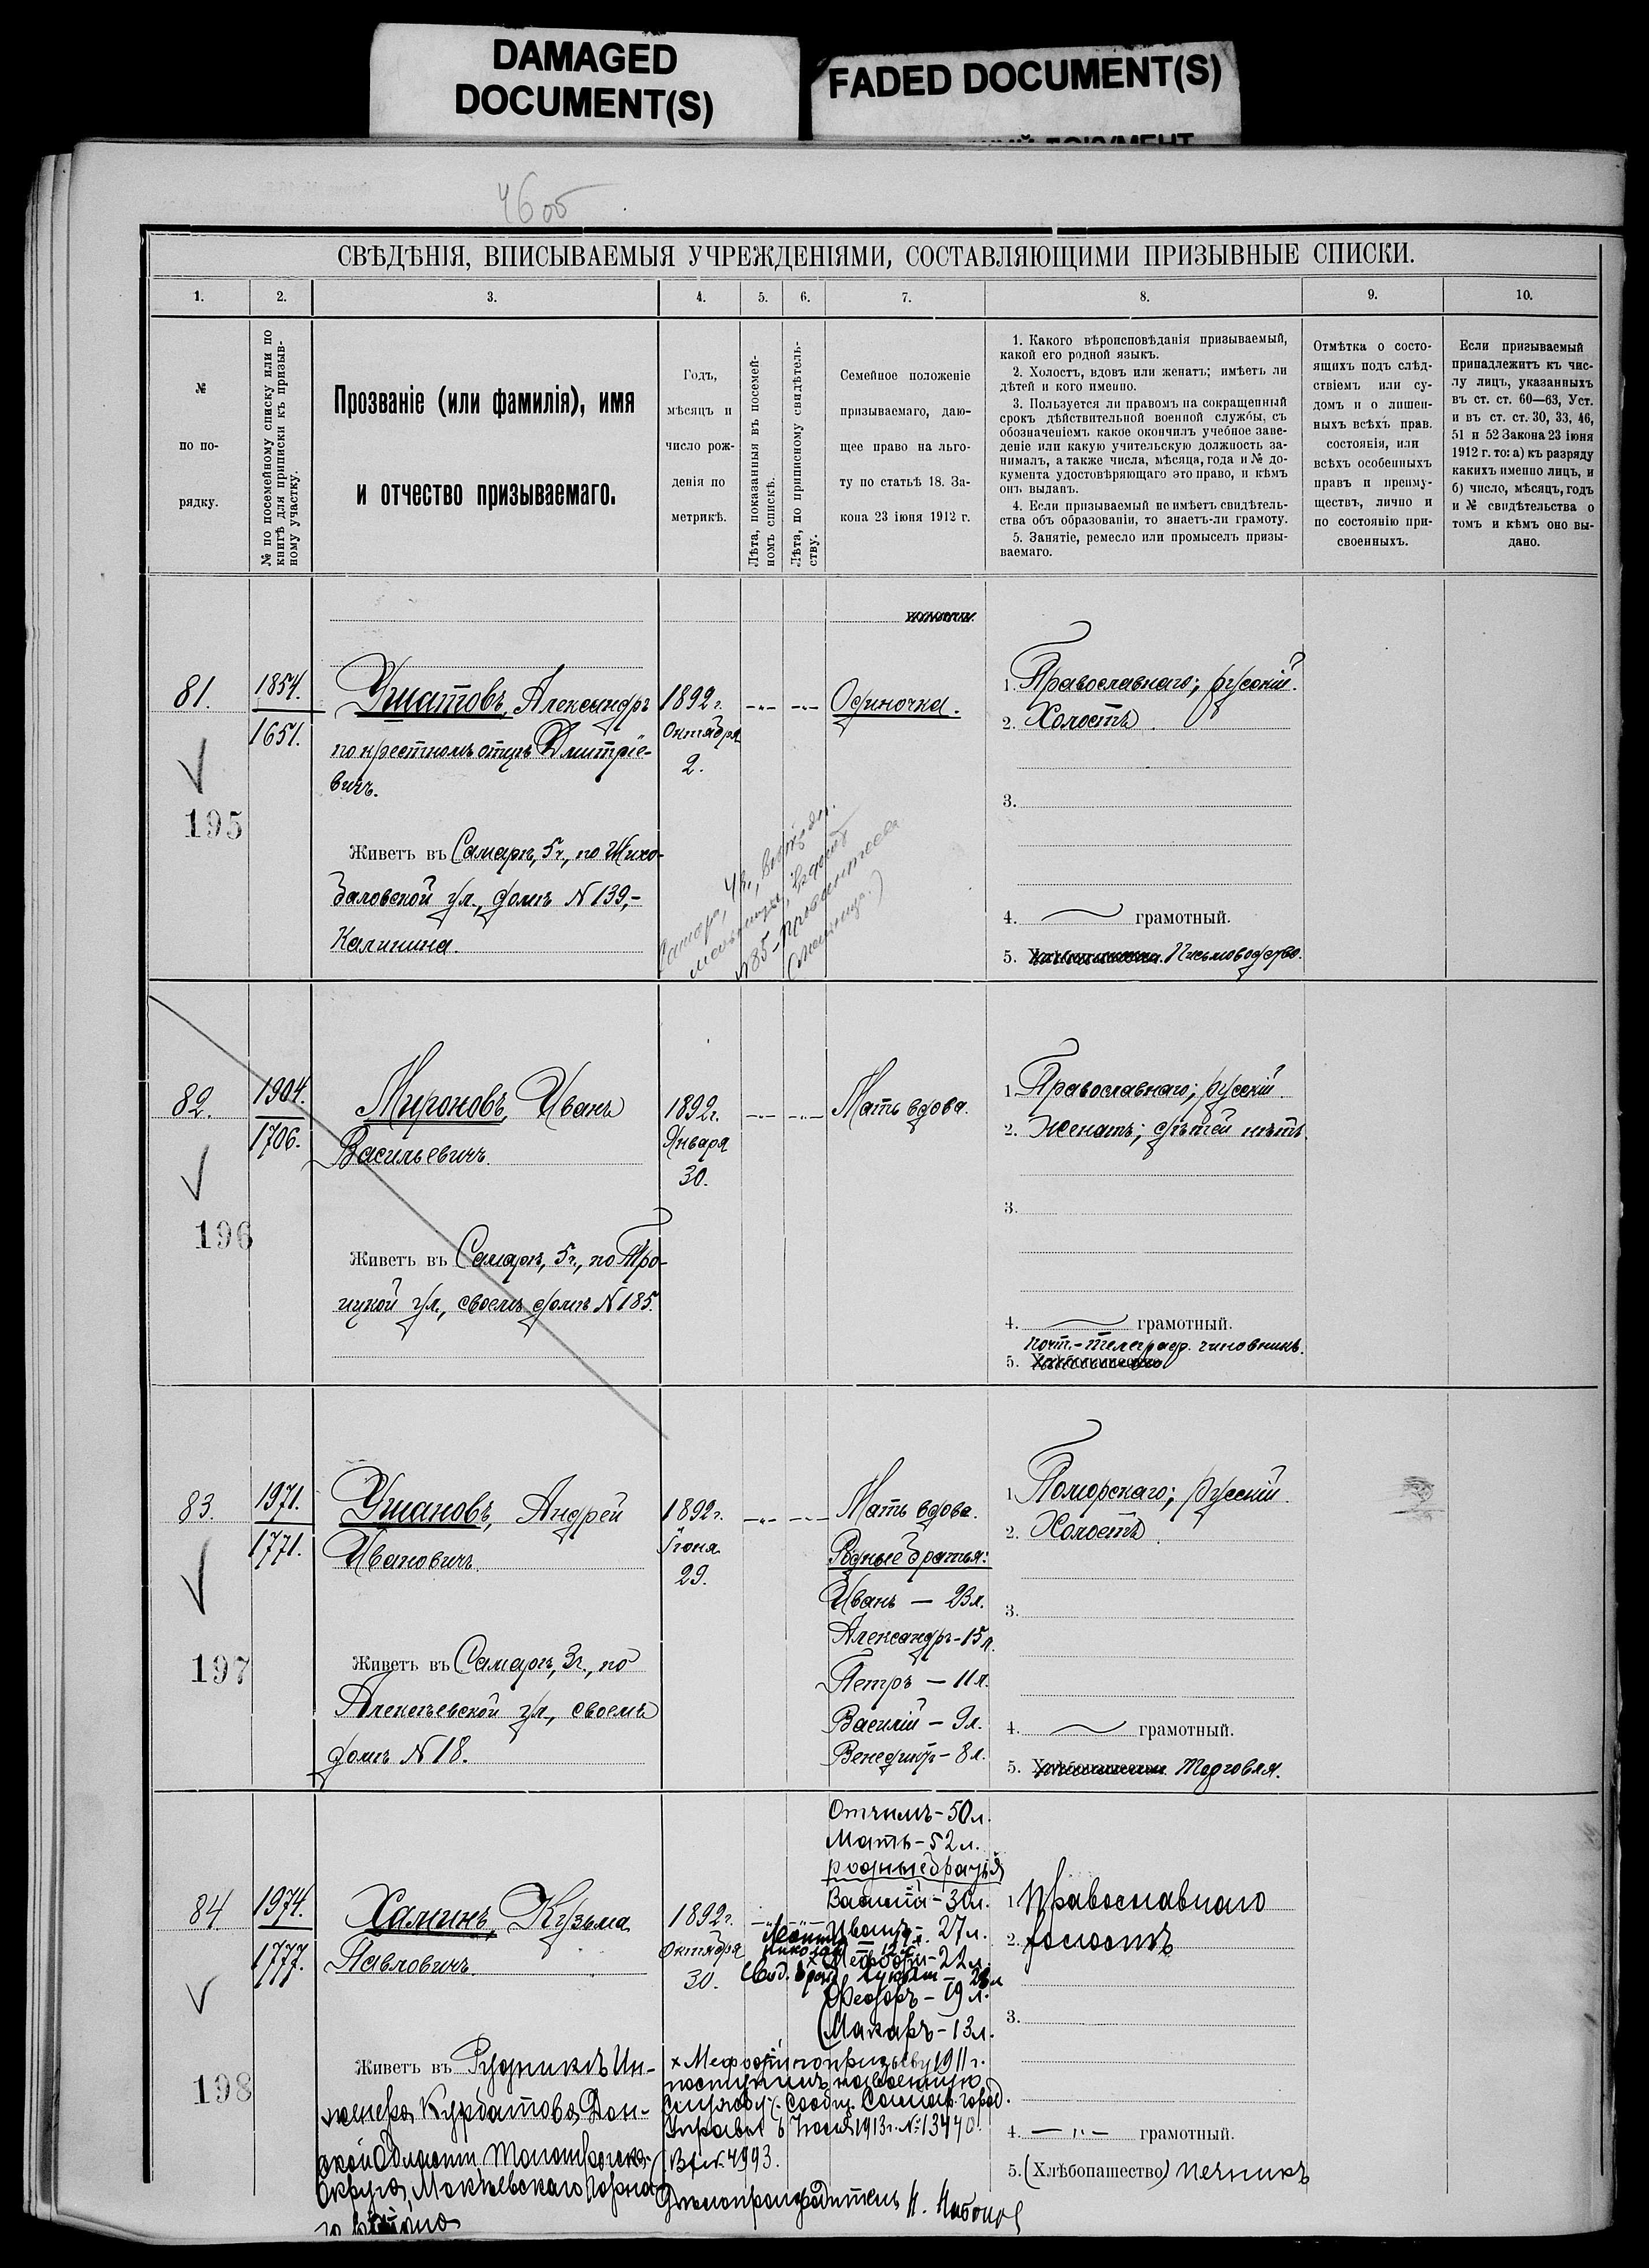 DAMAGED
DOCUMENT(S)
FADED DOCUMENT(S)
46 об
СВѢДѢНІЯ, ВПИСЫВАЕМЫЯ УЧРЕЖДЕНІЯМИ, СОСТАВЛЯЮЩИМИ ПРИЗЫВНЫЕ СПИСКИ.
1. 2. 3. 4. 5. 6. 7. 8. 9. 10.
№
по по-
рядку.
№ по посемейному списку или по
книгѣ для приписки къ призыв-
ному участку.
Прозваніе (или фамилія), имя
и отчество призываемаго.
Годъ,
мѣсяцъ и
число рож-
денія по
метрикѣ.
Лѣта, показанныя въ посемей-
номъ спискѣ.
Лѣта, по приписному свидѣтель-
ству.
Семейное положеніе
призываемаго, даю-
щее право на льго-
ту по статьѣ 18. За-
кона 23 іюня 1912 г.
1. Какого вѣроисповѣданія призываемый,
какой его родной языкъ.
2. Холостъ, вдовъ или женатъ; имѣетъ ли
дѣтей и кого именно.
3. Пользуется ли правомъ на сокращенный
срокъ дѣйствительной военной службы, съ
обозначеніемъ какое окончилъ учебное заве-
деніе или какую учительскую должность за-
нималъ, а также числа, мѣсяца, года и № до-
кумента удостовѣряющаго это право, и кѣмъ
онъ выданъ.
4. Если призываемый не имѣетъ свидѣтель-
ства объ образованіи, то знаетъ-ли грамоту.
5. Занятіе, ремесло или промыселъ призы-
ваемаго.
Отмѣтка о состо-
ящихъ подъ слѣд-
ствіемъ или су-
домъ и о лишен-
ныхъ всѣхъ прав.
состоянія, или
всѣхъ особенныхъ
правъ и преиму-
ществъ, лично и
по состоянію при-
своенныхъ.
Если призываемый
принадлежитъ къ чис-
лу лицъ, указанныхъ
въ ст. ст. 60—63, Уст.
и въ ст. ст. 30, 33, 46,
51 и 52 Закона 23 іюня
1912 г. то: а) къ разряду
какихъ именно лицъ, и
б) число, мѣсяцъ, годъ
и № свидѣтельства о
томъ и кѣмъ оно вы-
дано.
81.
195
1854.
1651.
Ушатовъ, Александръ
по крестномъ отцѣ Дмитріе-
вичъ.
Живетъ въ Самарѣ, 5ч., по Жихо-
даловской ул., домъ N 139,-
Калинина.
1892г.
Октября
2.
Одиночка.
1. Православнаго; русскій.
2. Холостъ.
3.
4. грамотный.
5. Письмоводство.
82.
196
1904.
1706.
Мироновъ, Иванъ
Васильевичъ.
Живетъ въ Самарѣ, 5ч., по Тро-
ицкой ул., своемъ домѣ N 185.
1892г.
Января
30.
Мать вдова.
1. Православнаго; русскій.
2. Женатъ; дѣтей нѣтъ.
3.
4. грамотный.
почт.-телеграф. чиновникъ.
5.
83.
197
1971.
1771.
Ушановъ, Андрей
Ивановичъ.
Живетъ въ Самарѣ, 3ч., по
Алексѣевской ул., своемъ
домѣ N 18.
1892г.
Іюня
29.
Мать вдова.
Родные братья:
Иванъ — 23л.
Александръ - 15л.
Петръ — 11л.
Василій — 9л.
Венедиктъ - 8л.
1. Поморскаго; русскій.
2. Холостъ.
3.
4. грамотный.
5. Торговля.
84
198
1974.
1777.
Хаминъ, Кузьма
Павловичъ.
Живетъ въ Рудникѣ Ин-
женера Курбатова Дон-
ской Области Таганрогска-
Округа, Макѣевскаго Горна-
го района
1892г.
Октября
30.
Отчимъ - 50л.
Мать - 52л.
родные братья
Василій - 30л.
Иванъ - 27л.
Мефодій - 22л.
Федоръ - 19л.
Макаръ - 13л.
х Мефодій по призыву 1911г.
поступилъ на военную
службу. Сообщ. Самар. город.
Управы 6 Іюля 1913г. № 13440.
Вх. №. 4993.
Дѣлопроизводитель
1. Православнаго
2. холостъ
3.
4. — " — грамотный.
5. (Хлѣбопашество) печникъ